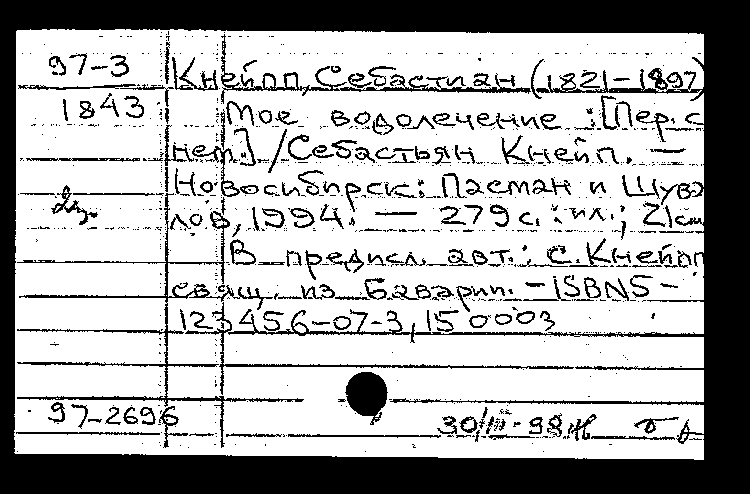 97-3
Кнейпп, Себастиан (1821-1897)
1843
Мое водолечение : [Пер. с
нем.] / Себастьян Кнейп. —
Новосибирск: Пасман и Шува
лов, 1994. — 279 с. : ил.; 21 см
В предисл. авт.: С. Кнейпп
свящ. из Баварии. - ISBN 5-
123456-07-3, 15 000 э
97-2696
30/III-98